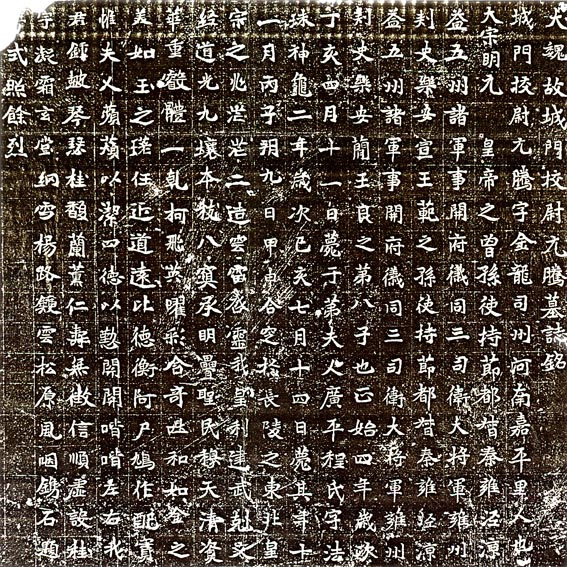 大魏故城門校尉元騰墓誌銘
城門校尉元騰字金龍司州河南嘉平里人也
大宗明元皇帝之曾孫使持節都督秦雍涇涼
益五州諸軍事開府儀同三司衛大將軍雍州
刺史樂安宣王範之孫使持節都督秦雍涇涼
益五州諸軍事開府儀同三司衛大將軍雍州
刺史樂安簡王良之第八子也正始四年歲次
丁亥四月十一日薨于第夫人廣平程氏字法
珠神龜二年歲次己亥七月十四日薨其年十
一月丙子朔九日甲申合窆於長陵之東北皇
宗之兆茫茫二造雲雷啓靈我皇利建武剋文
經道光九壤本枝八寅承明疊聖民穆天清資
華重發體一乾柯飛英曜彩含奇迺和如金之
美如玉之瑳任近道遠比德衡阿尸鳩作配實
惟夫人蘋蘩以潔四德以懃閨闈喈喈左右我
君鍾鼓琴瑟桂馥蘭薰仁壽無徵信順虛設桂
宇凝霜玄堂網雪楊路鍾雲松原風咽鐫石題
式照餘烈